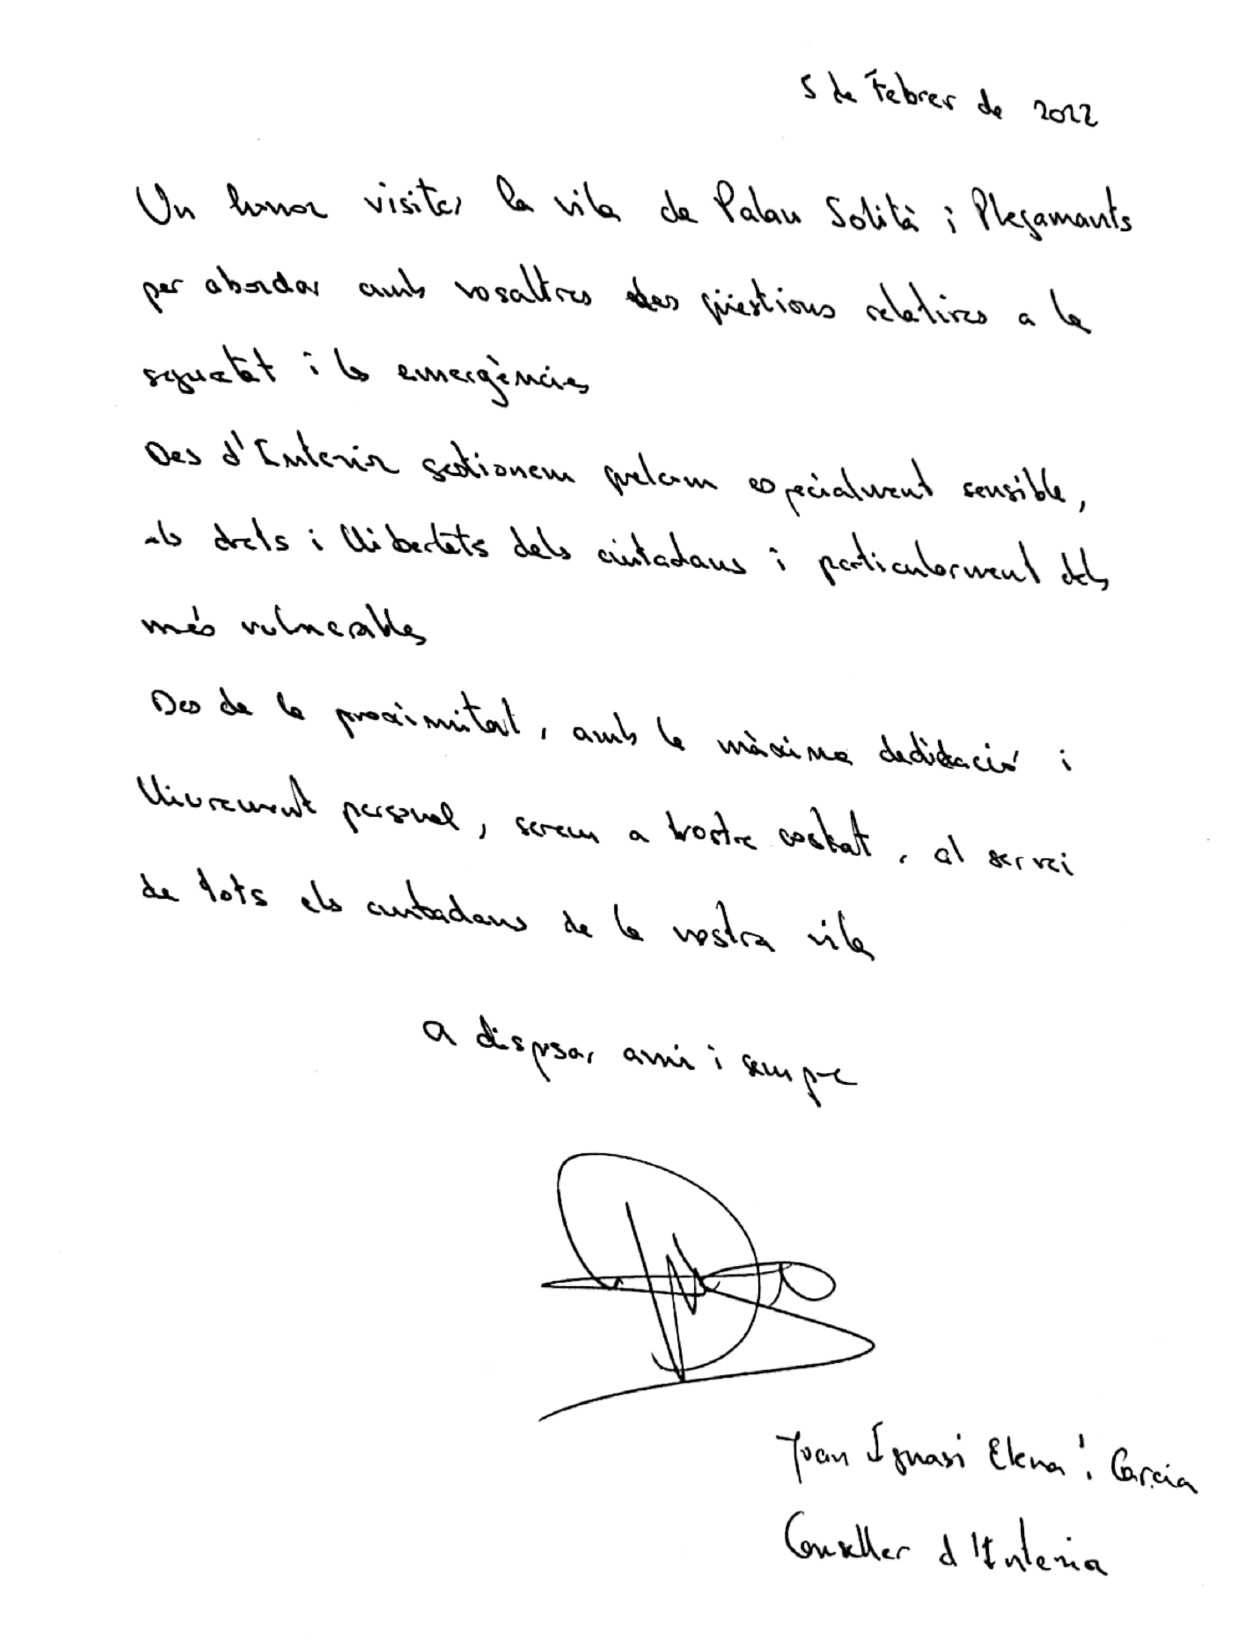 5 de Febrer de 2022
Un honor visitar la vila de Palau Solità i Plegamants
per abordar amb vosaltres des qüestions relatives a la
seguretat i les emergències
Des d'Interior gestionem quelcom especialment sensible,
els drets i llibertats dels ciutadans i particularment dels
més vulnerables
Des de la proximitat, amb la màxima dedicació i
lliurement personal, serem a vostre costat, al servei
de tots els ciutadans de la vostra vila
a disposar avui i sempre
Joan Ignasi Elena i Garcia
Conseller d'Interior